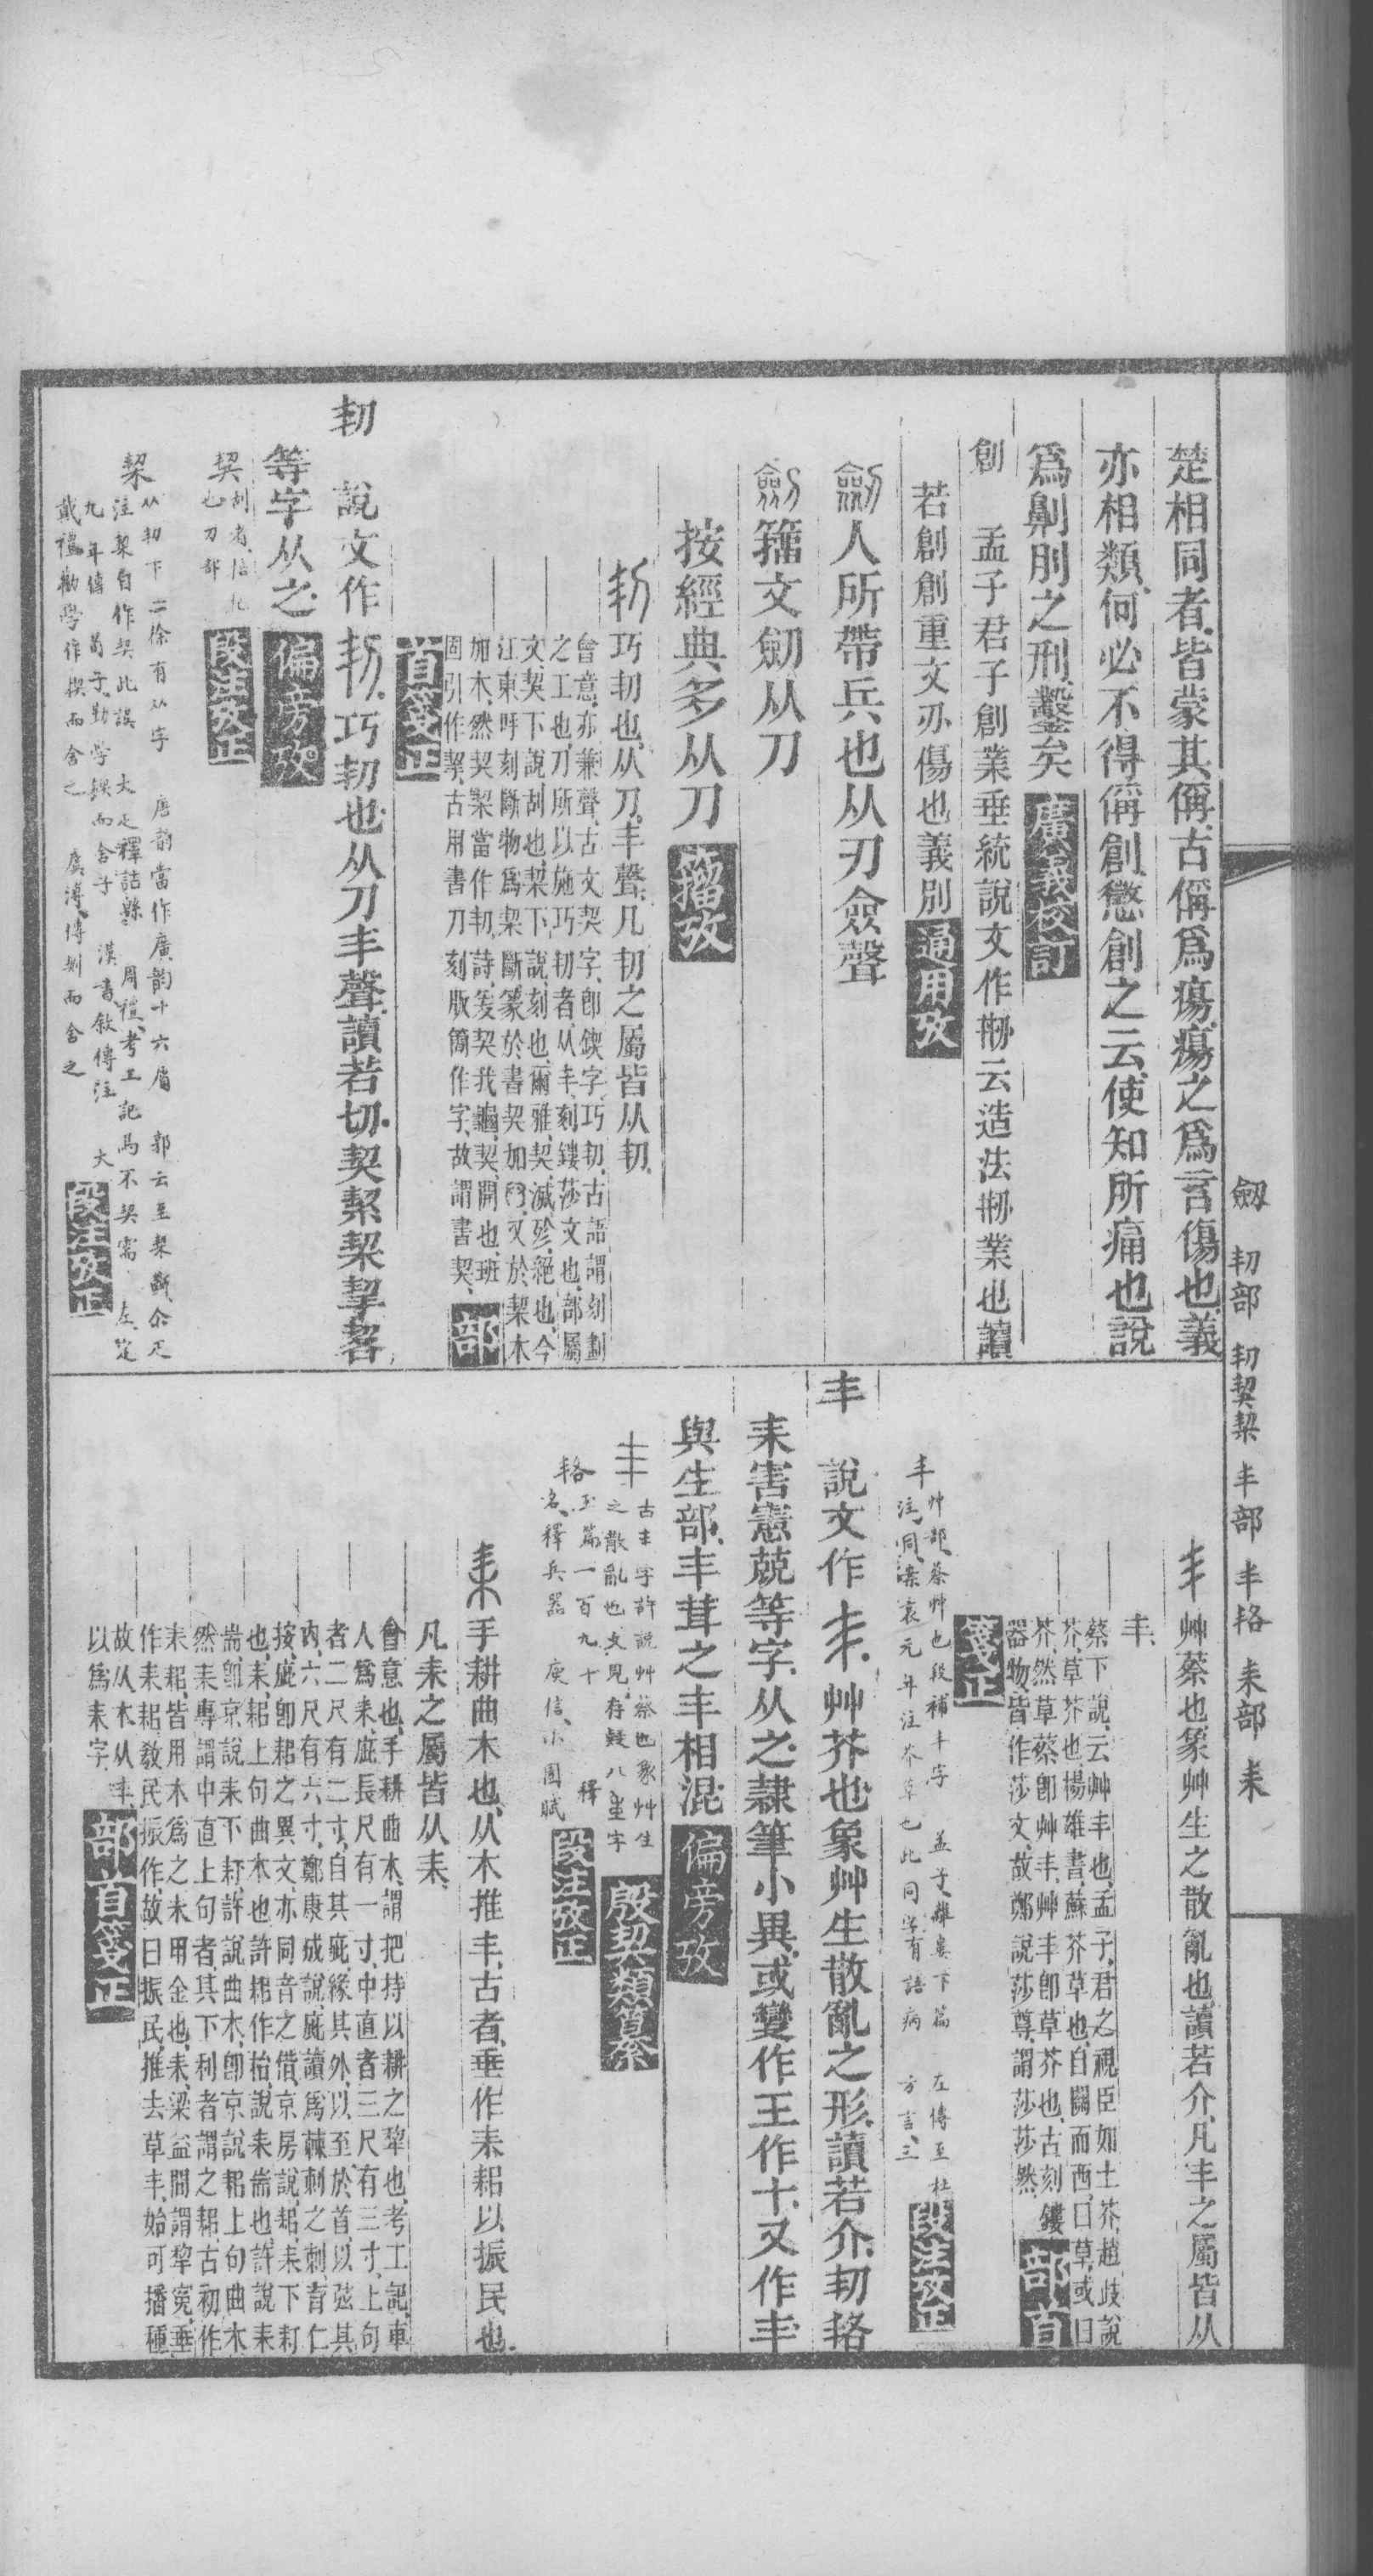 楚相同者、皆蒙其偁、古偁爲瘍、瘍之爲言傷也、義
亦相類、何必不得偁創、懲創之云、使知所痛也、說
爲劓刖之刑、鑿矣 廣義校訂
創 孟子君子創業垂統說文作剏云造法剏業也讀
若創創重文刅傷也義別 通用攷
劒人所帶兵也从刃僉聲
劍籒文劒从刀
按經典多从刀 籀攷
㓞巧㓞也、从刀、丯聲、凡㓞之屬皆从㓞、
會意、亦兼聲、古文契字、卽鍥字、巧㓞、古語謂刻劃
之工也、刀所以施巧㓞者、从丯、刻鏤莎文也、部屬
文、契下說、刮也、栔下說、刻也、爾雅、契、滅殄、絕也、今
江東呼刻斷物爲栔斷、篆於書契加㓞、又於栔木
加木、然契栔當作㓞、詩、爰契我龜、契、開也、班
固引作挈、古用書刀刻版簡作字、故謂書契、 部
首箋正
㓞 說文作㓞、巧㓞也、从刀丯聲、讀若切、契絜栔挈㓣
等字从之、 偏旁攷
契 刮者、信北
也 刀部 段注攷正
栔 从㓞下二徐有从字 唐韵當作廣韵十六屑 郭云至栔斷尒疋
注栔自作契此誤 大疋釋詁緜 周禮、考工記馬不契需 左、定
九年傳 荀子、勸學鍥而舍子 漢書敘傳注 大
戴禮、勸學作楔而舍之 虞溥、傳剘而舍之 段注攷正
劒 㓞部 㓞契栔 丯部 丯䩯 耒部 耒
丯艸蔡也、象艸生之散亂也、讀若介、凡丯之屬皆从
丯、
蔡下說、云艸丯也、孟子、君之視臣如土芥、趙歧說
芥、草芥也、揚雄書、蘇芥草也、自關而西、曰草、或曰
芥、然草蔡卽艸丯、艸丯卽草芥也、古刻鏤 部首
器物、皆作莎文、故鄭說莎尊、謂莎莎然、
箋正
丯 艸部、蔡艸也段補丯字 孟子、離婁下篇 左傳至杜
注、同、案哀元年注芥草也此同字有語病 方言、三 段注攷正
丯 說文作丯、艸芥也象艸生散亂之形、讀若介、㓞䩯
耒害憲兢等字、从之、隸筆小異、或變作王作十、又作丰
與生部、丰茸之丰相混、 偏旁攷
丯 古丯字許說艸蔡也象艸生
之散亂也文見、存疑八坒字 殷契類纂
䩯 玉篇一百九十 釋
名、釋兵器 庾信、小園賦 段注攷正
耒手耕曲木也、从木推丯、古者、垂作耒耜以振民也、
凡耒之屬皆从耒、
會意也、手耕曲木、謂把持以耕之犂也、考工記、車
人爲耒、庛長尺有一寸、中直者三尺有三寸、上句
者二尺有二寸、自其庛、緣其外、以至於首、以弦其
內、六尺有六寸、鄭康成說、庛讀爲棘刺之刺、首仁
按、庛卽耜之異文、亦同音之借、京房說、耜、耒下耓
也、耒、耜上句曲木也、許耜作枱、說耒耑也、許說耒
耑、卽京說耒下耓、許說曲木、卽京說耜上句曲木
然、耒專謂中直上句者、其下利者謂之耜、古初作
耒耜、皆用木爲之、未用金也、耒、梁益間謂犂冤、垂
作耒耜、敎民振作、故曰振民、推去草丯、始可播種
故从木从丯、 部首箋正
以爲耒字、